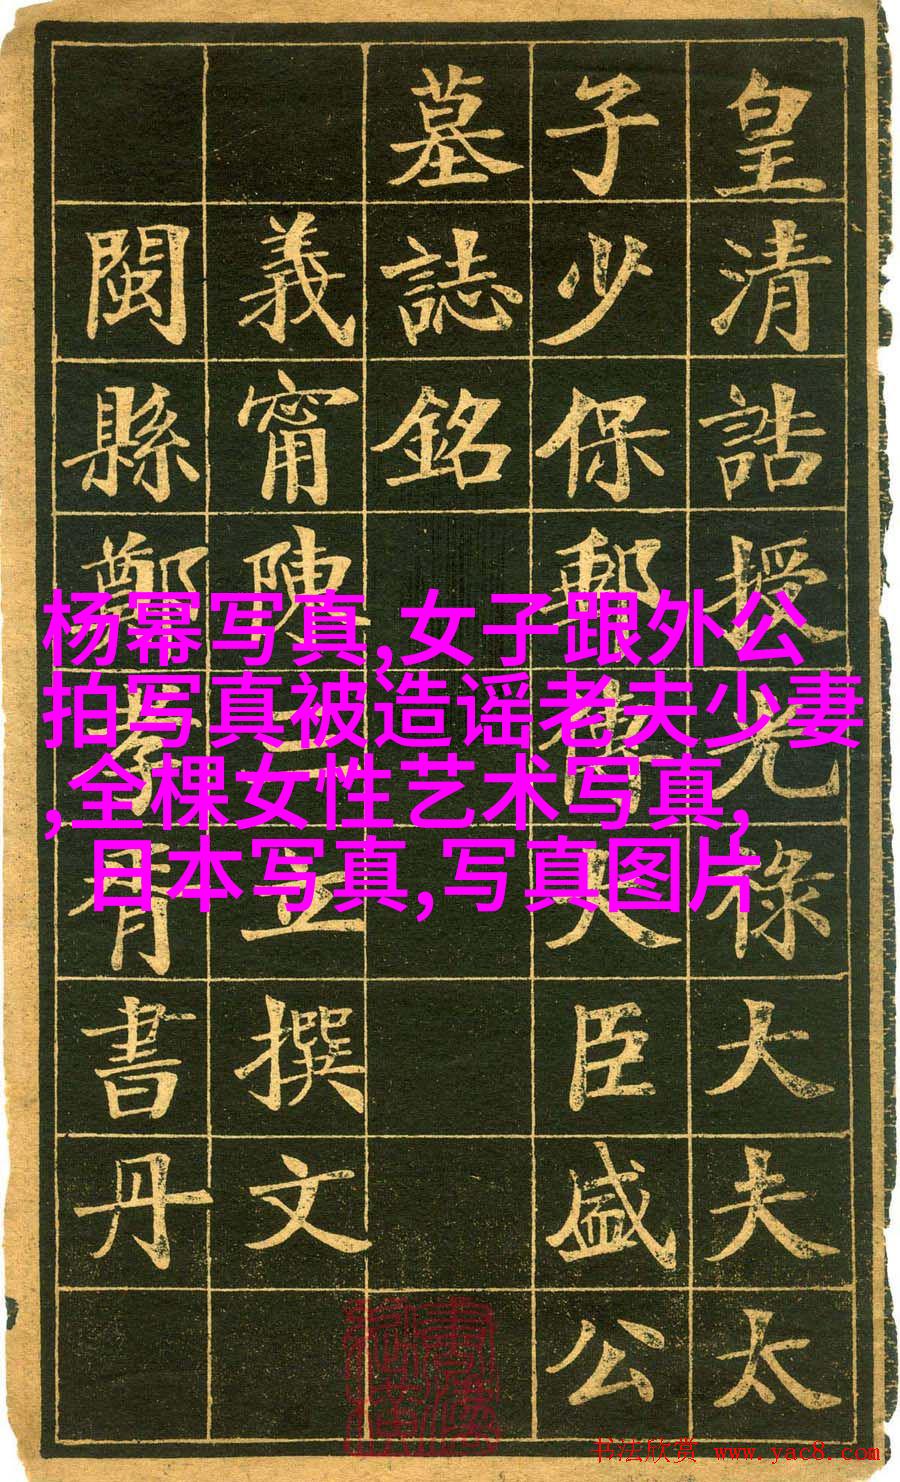 皇清誥授光祿大夫太
子少保郵傳大臣盛公
墓誌銘
義甯陳三立撰文
閩縣鄭孝胥書丹
杨幂写真,女子跟外公
拍写真被造谣老夫少妻
,全棵女性艺术写真,
日本写真,写真图片
书法欣赏 www.yac8.com